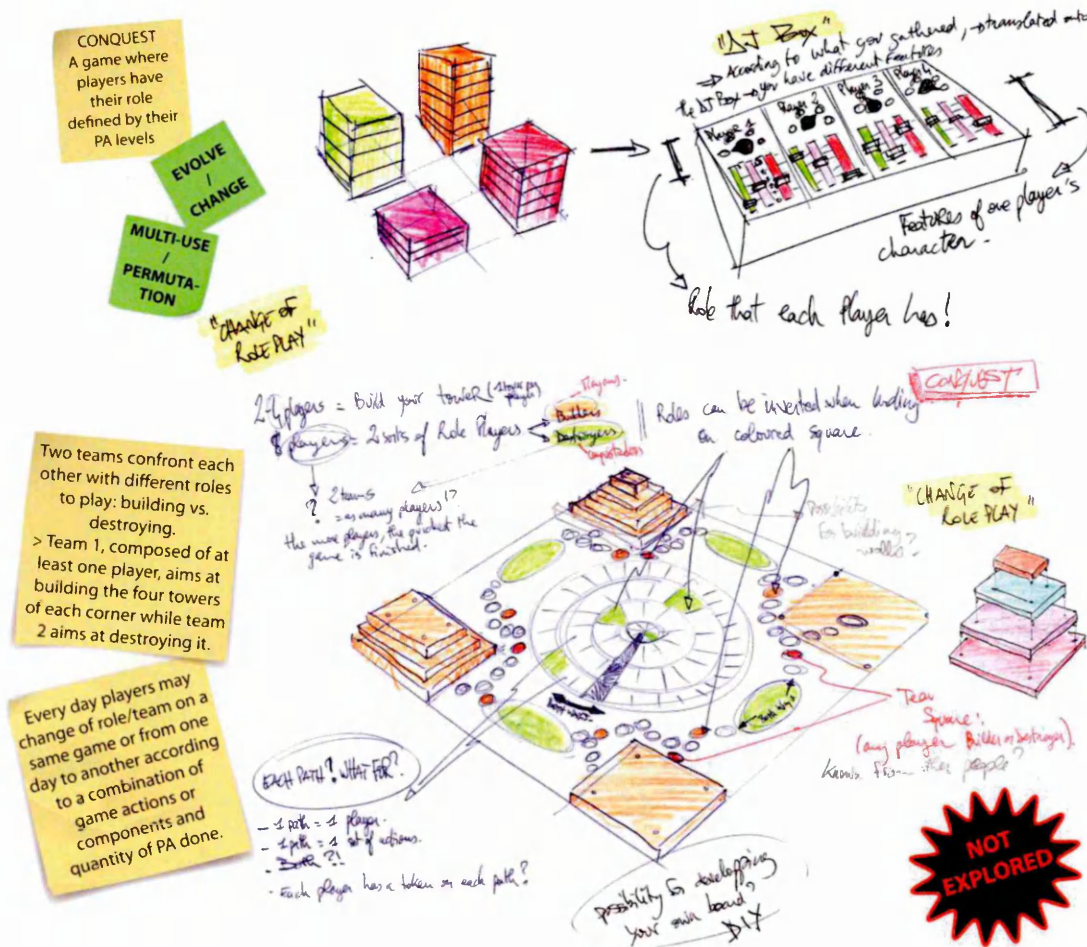 CONQUEST
A game where
players have
their role
defined by their
PA levels
EVOLVE
/
CHANGE
MULTI-USE
/
PERMUTA-
TION
"CHANGE OF
ROLE PLAY"
"DJ Box"
According to what you gathered, → translated onto
the DJ Box → you have different features
Player 1
Player 2
Player 3
Player 4
Features of one player's
character.
Role that each Player has!
2-4 players = Build your tower (1 tower per
player)
8 players = 2 sorts of Role Players
Builders
Destroyers
Roles can be inverted when landing
on coloured square.
CONQUEST
? 2 teams
= as many players!?
the more players, the quicker the
game is finished.
Two teams confront each
other with different roles
to play: building vs.
destroying.
> Team 1, composed of at
least one player, aims at
building the four towers
of each corner while team
2 aims at destroying it.
Possibility
for building
walls?
"CHANGE OF
ROLE PLAY"
Every day players may
change of role/team on a
same game or from one
day to another according
to a combination of
game actions or
components and
quantity of PA done.
Team
Square:
(any player Builder or Destroyer).
people?
EACH PATH? WHAT FOR?
- 1 path = 1 player.
- 1 path = 1 set of actions.
- Both ?!
- Each player has a token on each path?
possibility for developping
your own board?
DIY
NOT
EXPLORED